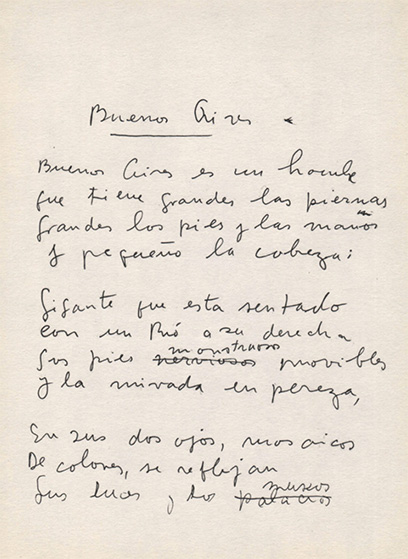 Buenos Aires
Buenos Aires es un hombre
que tiene grandes las piernas
Grandes los pies y las manos
Y pequeño la cabeza;
Gigante que esta sentado
con un Rio a su derecha
Sus pies nerviosos monstruosos movibles
Y la mirada en pereza,
En sus dos ojos, mosaicos
De colores, se reflejan
Sus luces y palacios